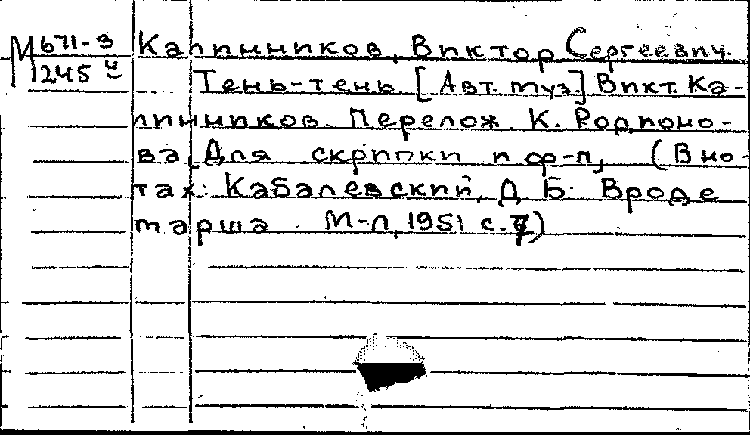 М 671-3 Калинников, Виктор Сергеевич.
1245 Тень-тень. [Авт. муз.] Викт. Ка-
линников. Перелож. К. Родионо-
ва. Для скрипки и ф-п, (В но-
тах: Кабалевский, Д. Б. Вроде
марша. М-Л, 1951 с. 7)